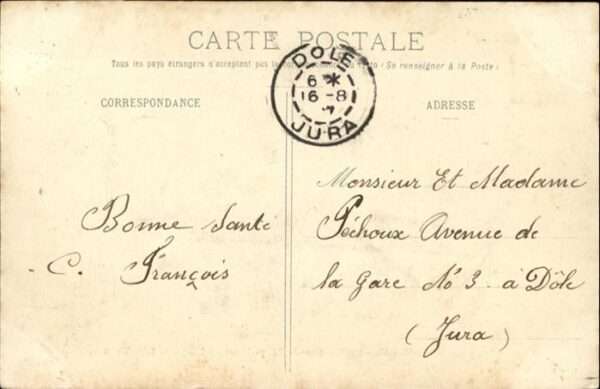 CARTE POSTALE
Tous les pays étrangers n'acceptent pas la (Se renseigner à la Poste)
DOLE
6 *
16-8
7
JURA
CORRESPONDANCE
ADRESSE
Bonne Santé
C. François
Monsieur Et Madame
Péchoux Avenue de
la Gare No 3 à Dôle
(Jura)